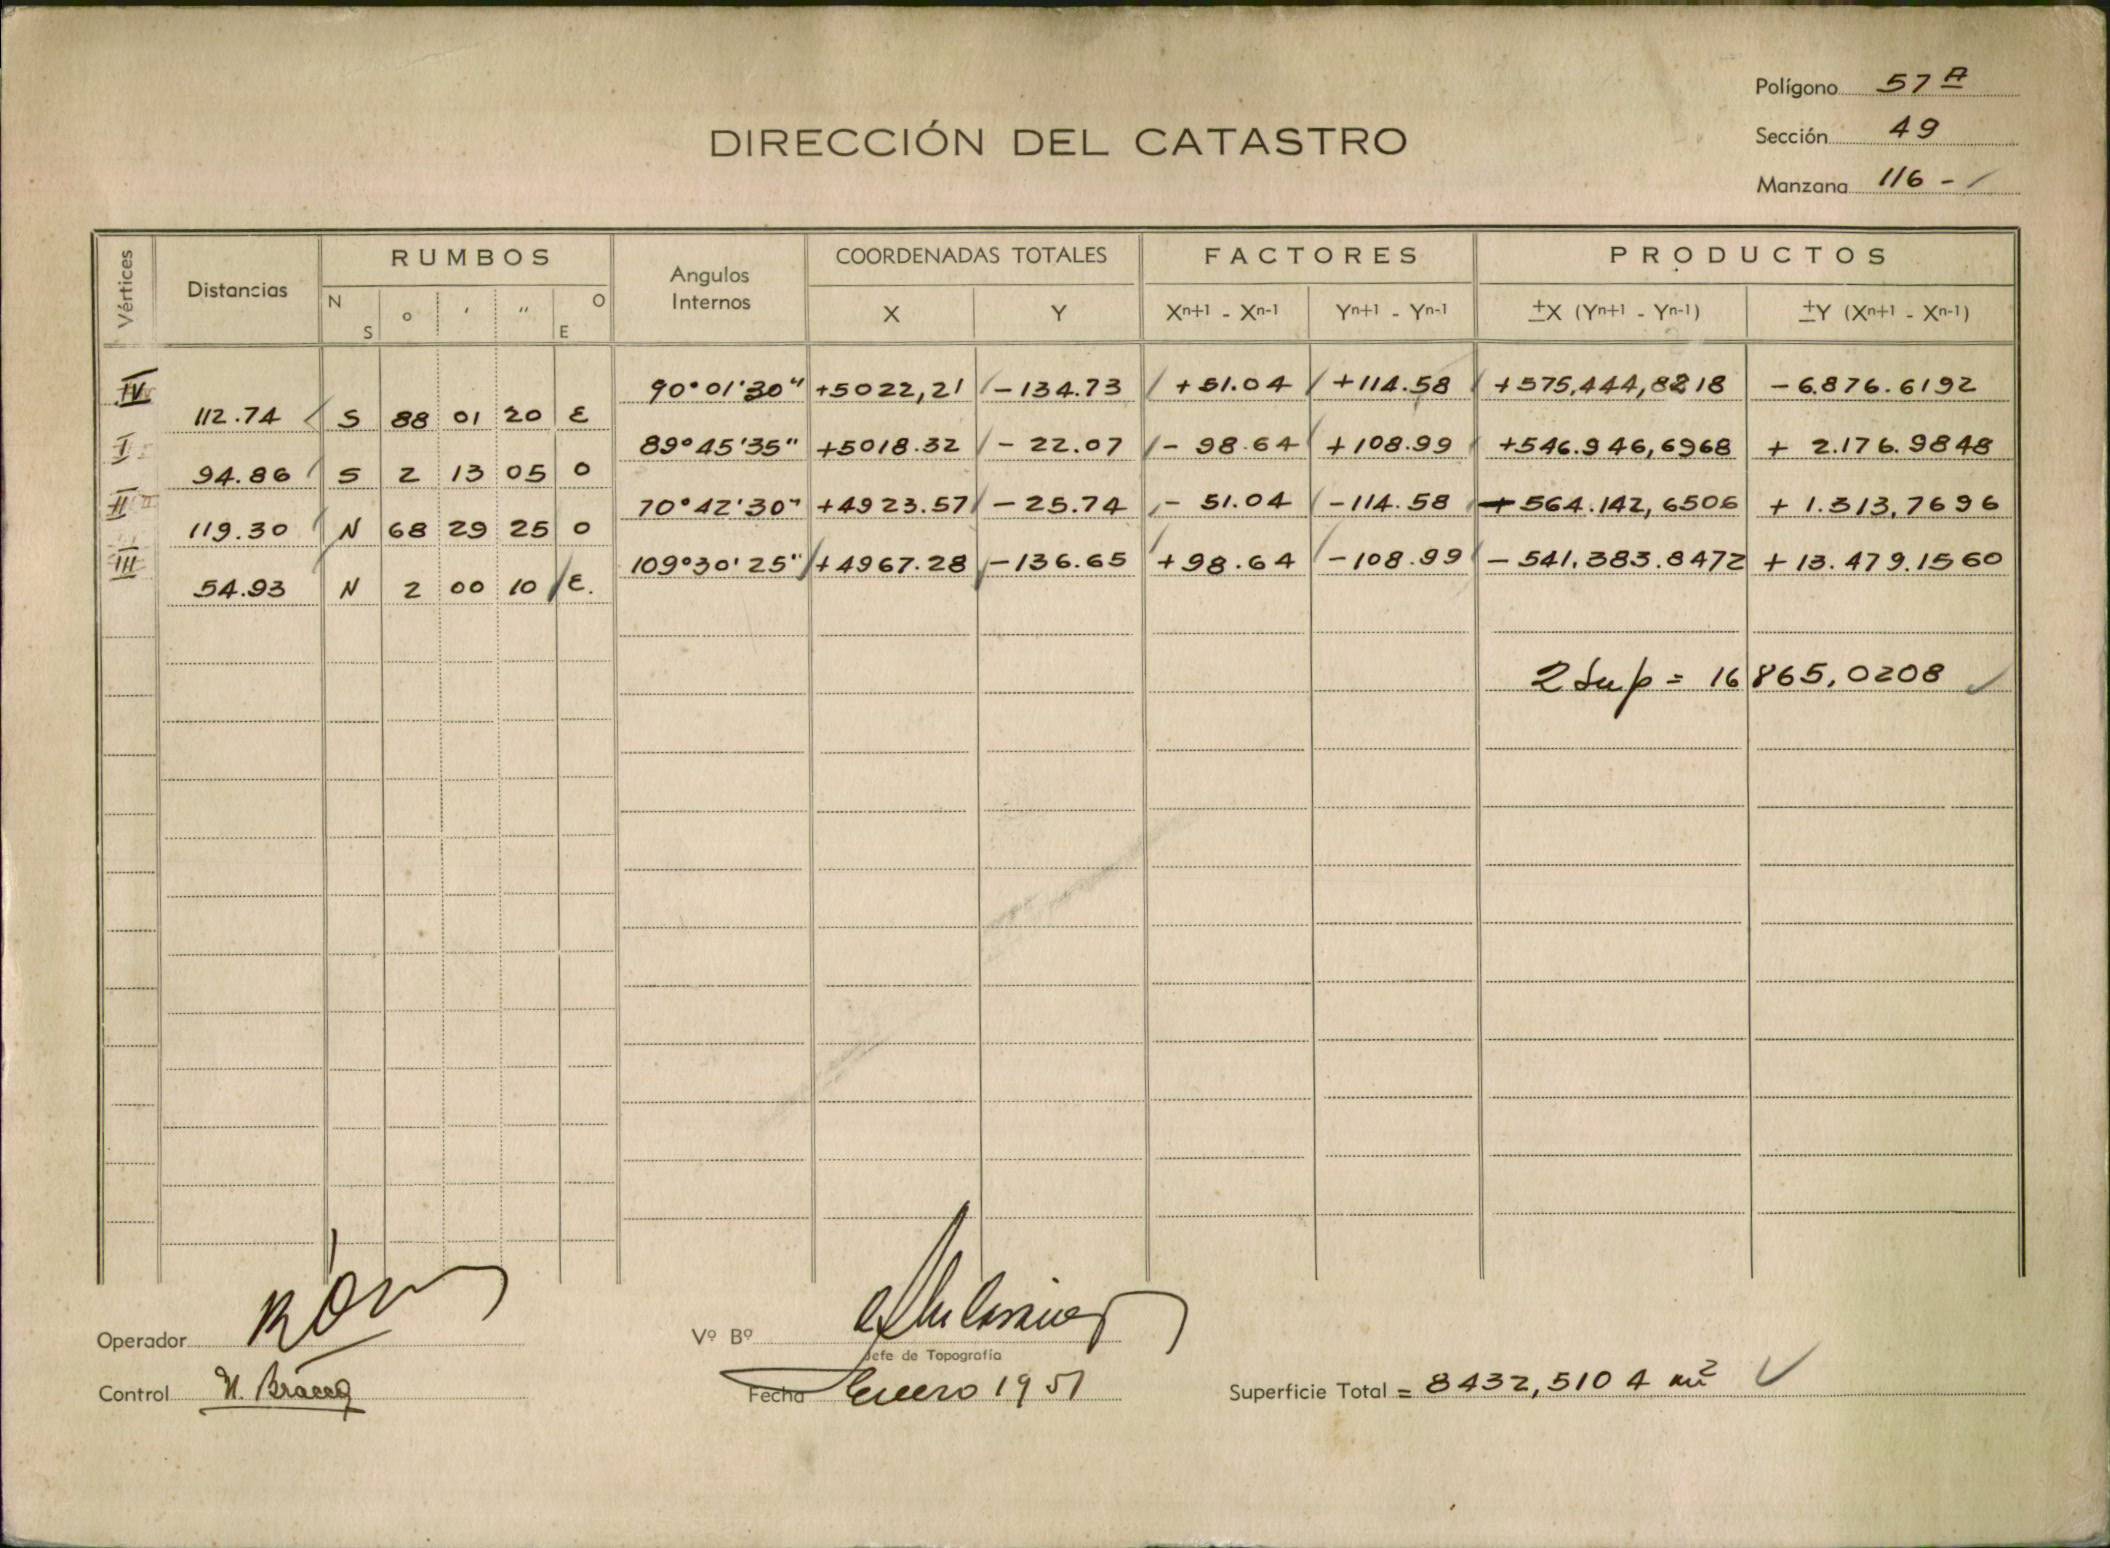 Polígono 57 A
DIRECCIÓN DEL CATASTRO
Sección 49
Manzana 116 -
Vértices Distancias RUMBOS Angulos Internos COORDENADAS TOTALES FACTORES PRODUCTOS
N S o ' '' O E X Y Xn+1 - Xn-1 Yn+1 - Yn-1 ±X (Yn+1 - Yn-1) ±Y (Xn+1 - Xn-1)
IV 90°01'30" +5022,21 -134.73 +51.04 +114.58 +575,444,8218 -6.876.6192
112.74 S 88 01 20 E
I 89°45'35" +5018.32 - 22.07 - 98.64 +108.99 +546.946,6968 + 2.176.9848
94.86 S 2 13 05 O
II 70°42'30" +4923.57 -25.74 - 51.04 -114.58 -564.142,6506 + 1.313,7696
119.30 N 68 29 25 O
III 109°30'25" +4967.28 -136.65 +98.64 -108.99 -541.383.8472 +13.479.1560
54.93 N 2 00 10 E.
2 Sup = 16 865,0208
Operador
Vº Bº
Jefe de Topografía
Control
Fecha Enero 1951
Superficie Total = 8432,5104 m²